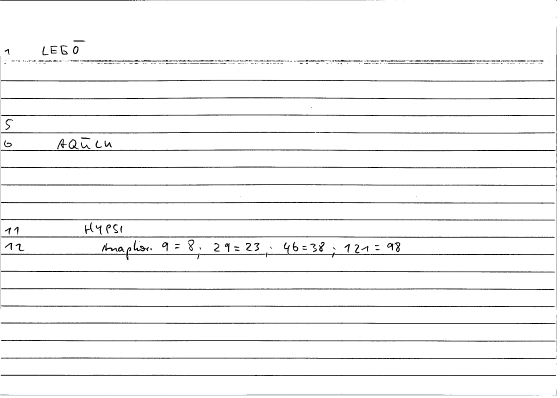 1 LEGŌ
5
6 AQŪLU
11 HYPSI
12 Anaphor. 9 = 8 ; 29 = 23 ; 46 = 38 ; 121 = 98